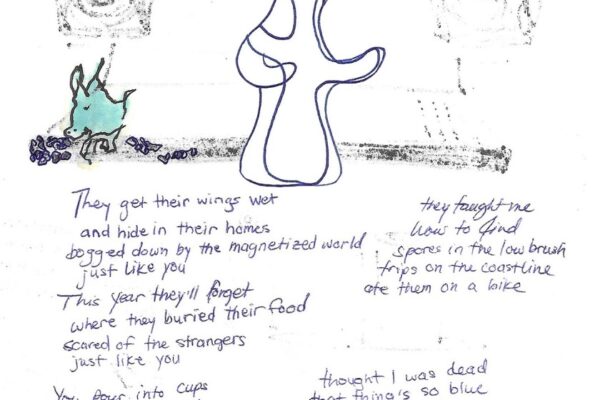 They get their wings wet
and hide in their homes
bogged down by the magnetized world
just like you
This year they'll forget
where they buried their food
scared of the strangers
just like you
You pour into cups
they taught me
how to find
spores in the low brush
trips on the coastline
ate them on a hike
thought I was dead
that thing's so blue